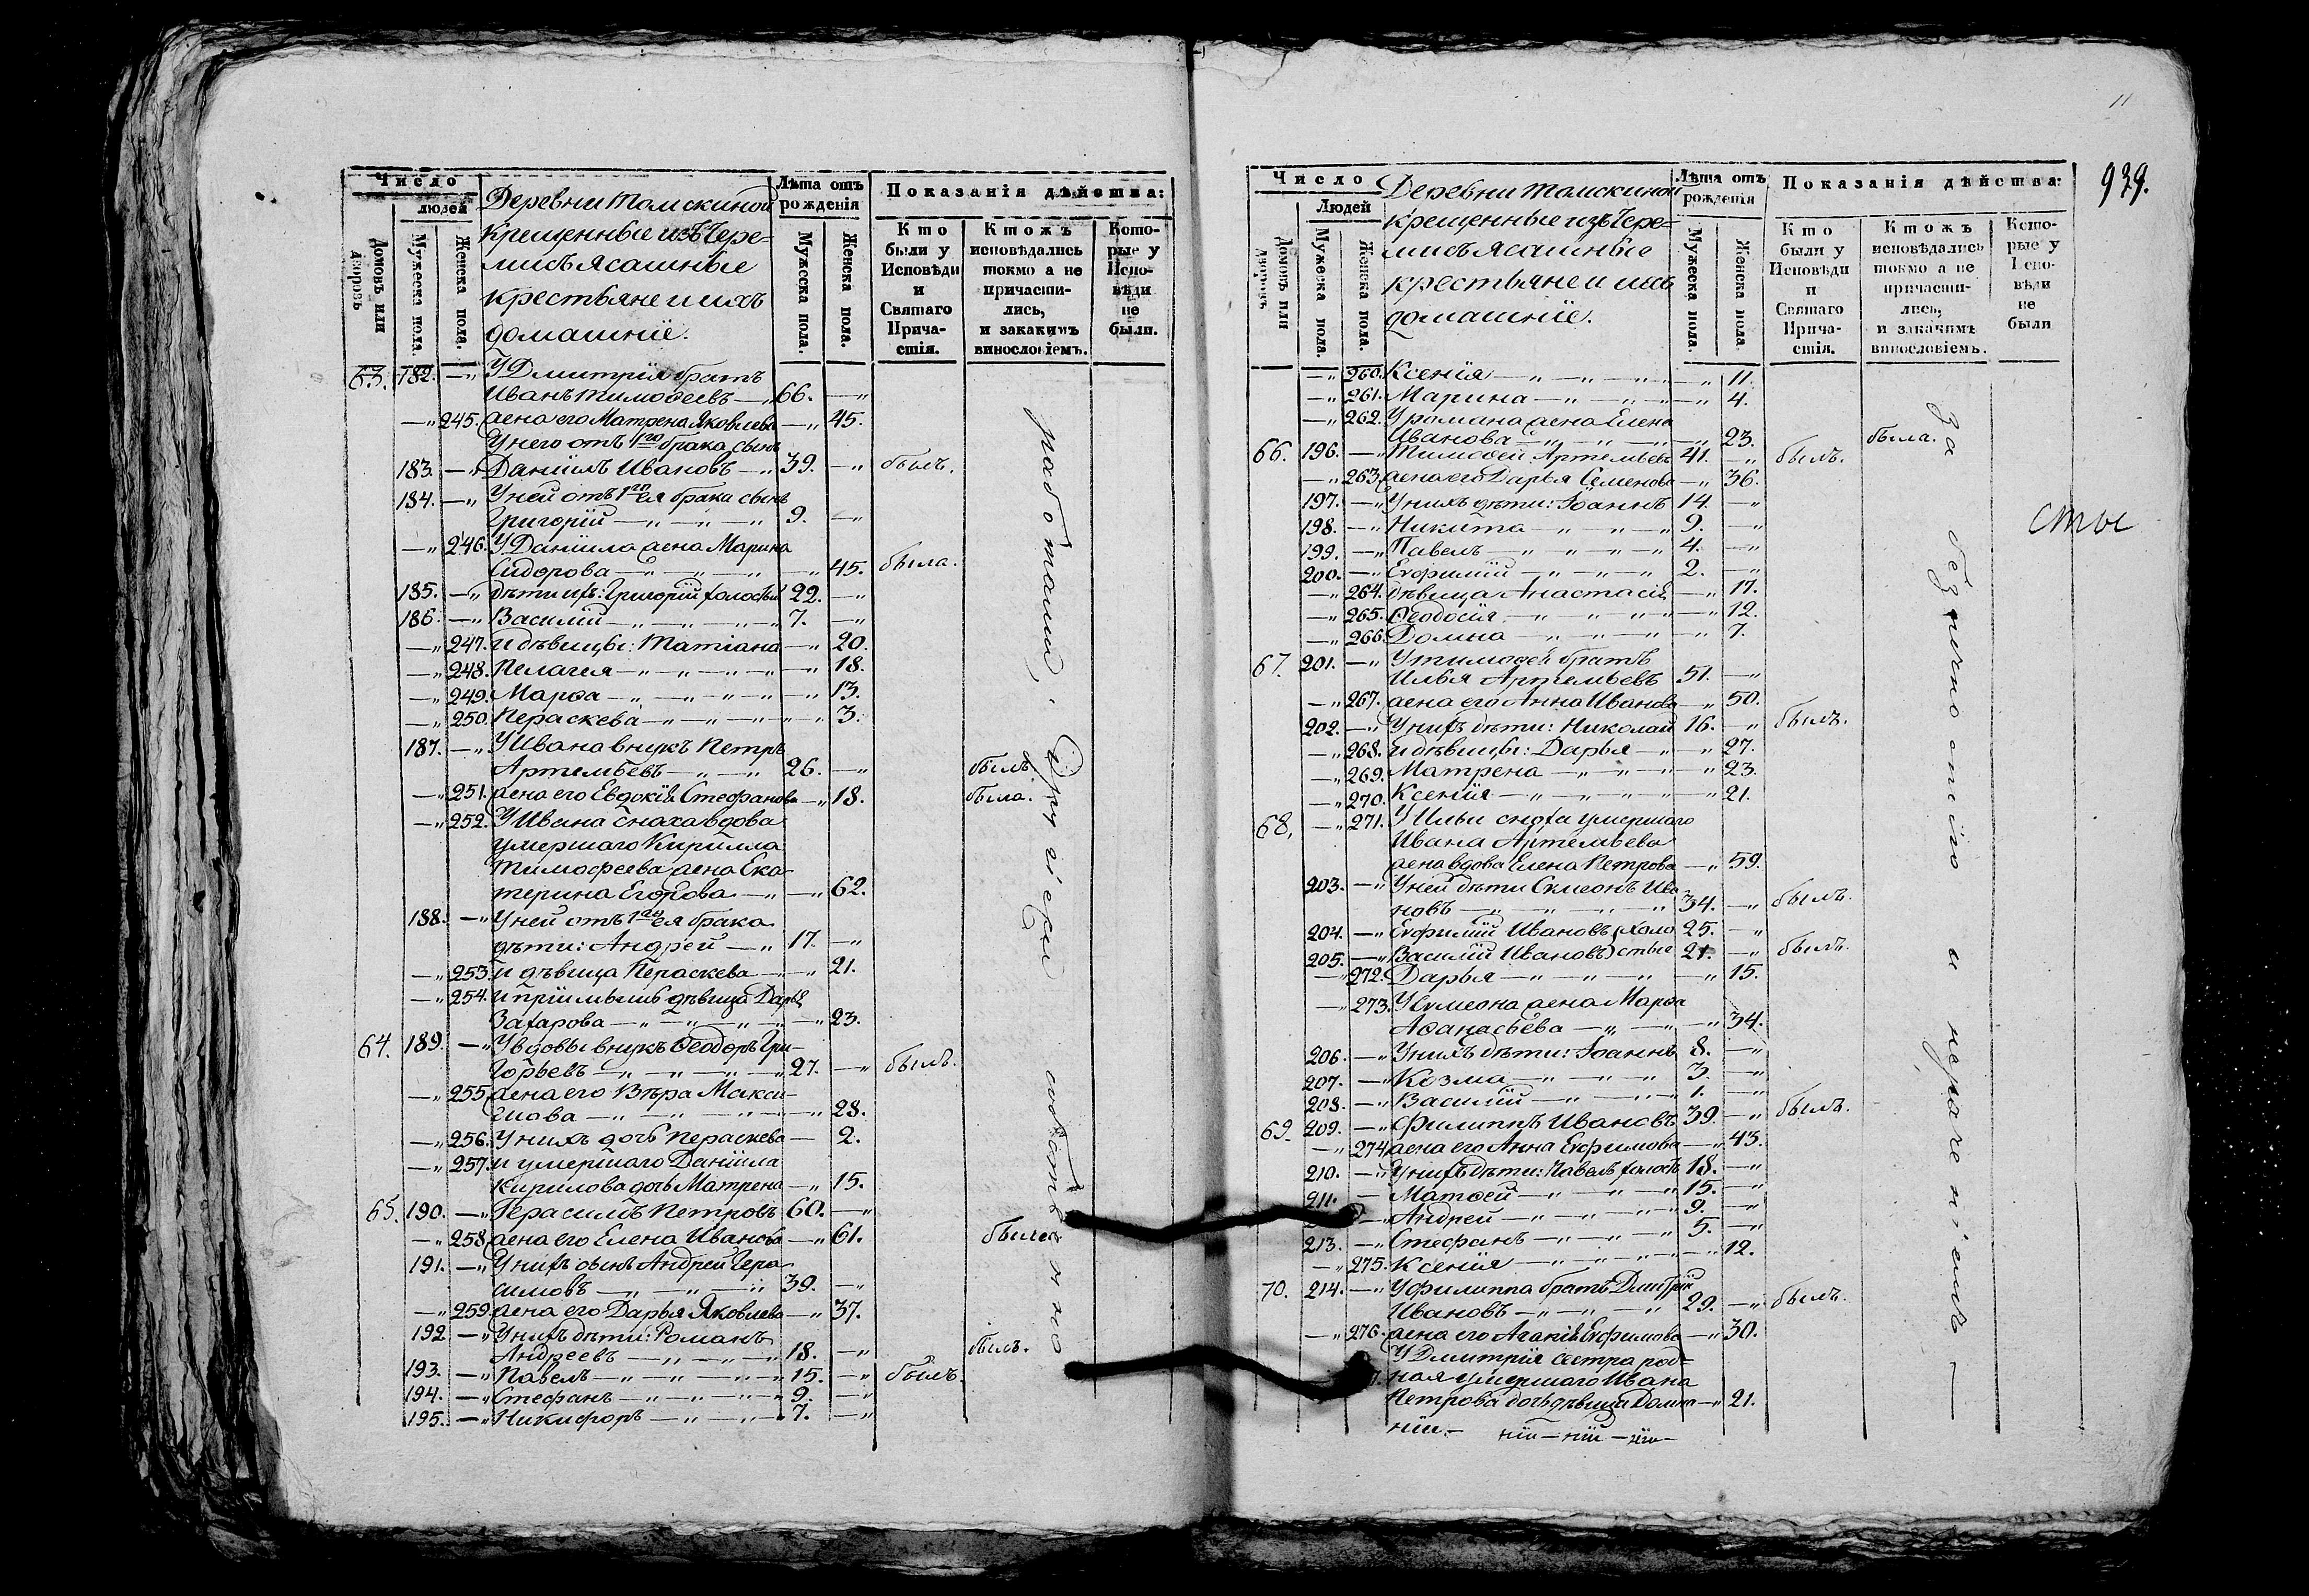 Число
людей
Домовъ или дворовъ
Мужеска пола.
Женска пола.
Деревни Томскиной
крещенные изъ Чере-
мисъ Ясашные
крестьяне и ихъ
домашніе.
Лѣта отъ
рожденія
Мужеска пола.
Женска пола.
Показанія дѣйства:
Кто
были у
Исповѣди
и
Святаго
Прича-
стія.
Ктожъ
исповѣдались
токмо а не
причасти-
лись,
и закакимъ
винословіемъ.
Кото-
рые у
Испо-
вѣди
не
были.
63. 182. —„ У Дмитрія братъ
Иванъ Тимофеевъ —„ 66. —„
—„ 245. жена его Матрена Яковлева —„ 45.
У него отъ 1го брака сынъ
183. —„ Даніилъ Ивановъ —„ 39. —„ былъ.
184. —„ У ней отъ 1го ея брака сынъ
Григорій —„ —„ —„ 9. —„
—„ 246. У Даніила жена Марина
Сидорова —„ —„ —„ —„ 45. была.
185. —„ дѣти ихъ: Григорій холостъ 22. —„
186. —„ Василій —„ —„ —„ 7. —„
—„ 247. и дѣвицы: Татіана —„ 20.
—„ 248. Пелагея —„ —„ —„ —„ 18.
—„ 249. Марѳа —„ —„ —„ —„ 13.
—„ 250. Пераскева —„ —„ —„ —„ 3.
187. —„ У Ивана внукъ Петръ
Артемьевъ —„ —„ 26. —„ былъ.
—„ 251. жена его Евдокія Стефанова —„ 18. была.
—„ 252. У Ивана сноха вдова
умершаго Кирилла
Тимофеева жена Ека-
терина Егорова —„ —„ 62.
188. —„ У ней отъ 1го ея брака
дѣти: Андрей —„ 17. —„
—„ 253. и дѣвица Пераскева —„ —„ 21.
—„ 254. и пріимышъ дѣвица Дарья
Захарова —„ —„ —„ —„ 23.
64. 189. —„ У вдовы внукъ Ѳеодоръ Гри-
горьевъ —„ —„ —„ 27. —„ былъ.
—„ 255. жена его Вѣра Макси-
мова —„ —„ —„ —„ 28.
—„ 256. У нихъ дочь Пераскева — 2.
—„ 257. и умершаго Даніила
Кирилова дочь Матрена —„ 15.
65. 190. —„ Герасимъ Петровъ 60. —„
—„ 258. жена его Елена Иванова —„ 61. были
191. —„ У нихъ сынъ Андрей Гера-
симовъ —„ —„ —„ 39. —„
—„ 259. жена его Дарья Яковлева —„ 37.
192. —„ У нихъ дѣти: Романъ
Андреевъ —„ —„ —„ 18. —„ былъ.
193. —„ Павелъ —„ —„ —„ 15. —„ былъ.
194. —„ Стефанъ —„ —„ —„ 9. —„
195. —„ Никифоръ —„ —„ —„ 7. —„
11
939.
Число
Людей
Домовъ или дворовъ
Мужеска пола.
Женска пола.
Деревни Томскиной
крещенные изъ Чере-
мисъ Ясашные
крестьяне и ихъ
домашніе.
Лѣта отъ
рожденія
Мужеска пола.
Женска пола
Показанія дѣйства:
Кто
были у
Исповѣди
и
Святаго
Прича-
стія.
Ктожъ
исповѣдались
токмо а не
причасти-
лись,
и закакимъ
винословіемъ.
Кото-
рые у
Испо-
вѣди
не
были
—„ 260. Ксенія —„ —„ —„ —„ 11.
—„ 261. Марина —„ —„ —„ —„ 4.
—„ 262. У Романа жена Елена
Иванова —„ —„ —„ —„ 23. была.
66. 196. —„ Тимофей Артемьевъ 41. —„ былъ.
—„ 263. жена его Дарья Семенова —„ 36.
197. —„ У нихъ дѣти: Іоаннъ 14. —„
198. —„ Никита —„ —„ —„ 9. —„
199. —„ Павелъ —„ —„ —„ 4. —„
200. —„ Евфимій —„ —„ —„ 2. —„
—„ 264. дѣвица Анастасія —„ 17.
—„ 265. Ѳеодосія —„ —„ —„ —„ 12.
—„ 266. Домна —„ —„ —„ —„ 7.
67. 201. —„ У Тимофея братъ
Илья Артемьевъ 51. —„
—„ 267. жена его Анна Иванова —„ 50.
202. —„ У нихъ дѣти: Николай 16. —„ былъ.
—„ 268. и дѣвицы: Дарья —„ —„ 27.
—„ 269. Матрена —„ —„ —„ —„ 23.
—„ 270. Ксенія —„ —„ —„ —„ 21.
68. —„ 271. У Ильи сноха умершаго
Ивана Артемьева
жена вдова Елена Петрова —„ 59.
203. —„ У ней дѣти Симеонъ Ива-
новъ —„ —„ —„ —„ 34. —„ былъ.
204. —„ Евфимій Ивановъ (холо 25. —„
205. —„ Василій Ивановъ) стые 21. —„ былъ.
—„ 272. Дарья —„ —„ —„ —„ 15.
—„ 273. У Симеона жена Марѳа
Аѳанасьева —„ —„ —„ 34.
206. —„ У нихъ дѣти: Іоаннъ 8. —„
207. —„ Козма —„ —„ —„ 3. —„
208. —„ Василій —„ —„ —„ 1. —„
69. 209. —„ Филиппъ Ивановъ 39. —„ былъ.
—„ 274. жена его Анна Евфимова —„ 43.
210. —„ У нихъ дѣти: Павелъ холостъ 18. —„
211. — Матѳей —„ —„ —„ 15. —„
—„ Андрей —„ —„ —„ 9. —„
213. —„ Стефанъ —„ —„ —„ 5. —„
—„ 275. Ксенія —„ —„ —„ —„ 12.
70. 214. —„ У Филиппа братъ Дмитрій
Ивановъ —„ —„ —„ 29. —„ былъ.
—„ 276. жена его Агапія Евфимова —„ 30.
У Дмитрія сестра род-
ная умершаго Ивана
Петрова дочь дѣвица Домна —„ 21.
работаши, Другіежи
за
и нераченіемъ —
сты